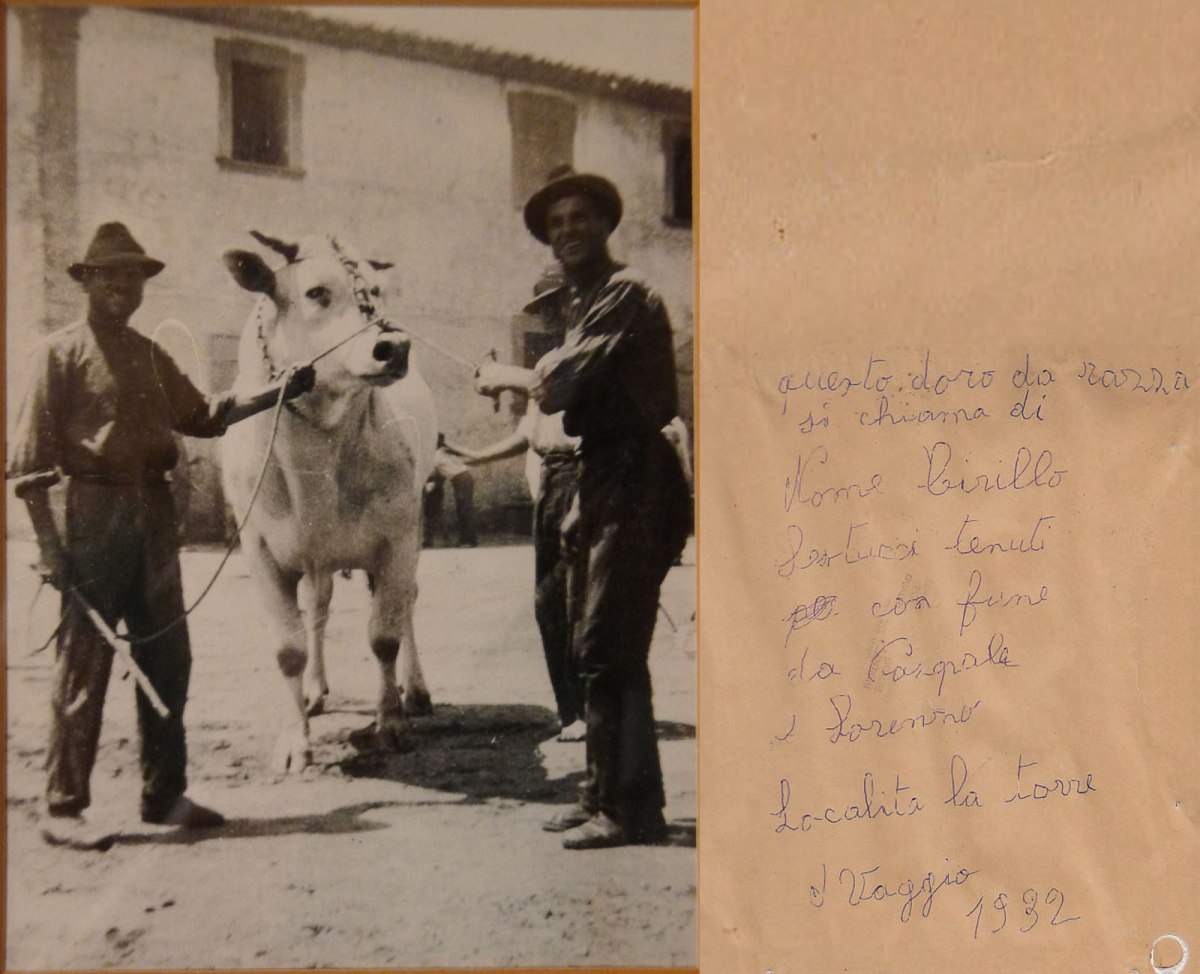 questo doro da razza
si chiama di
Nome Cirillo
tenuti
con fune
da Pasquale
e Lorenzino
Localita la torre
d Vaggio
1932